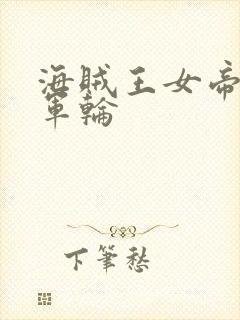 海賊王女帝
軍輪
下筆愁